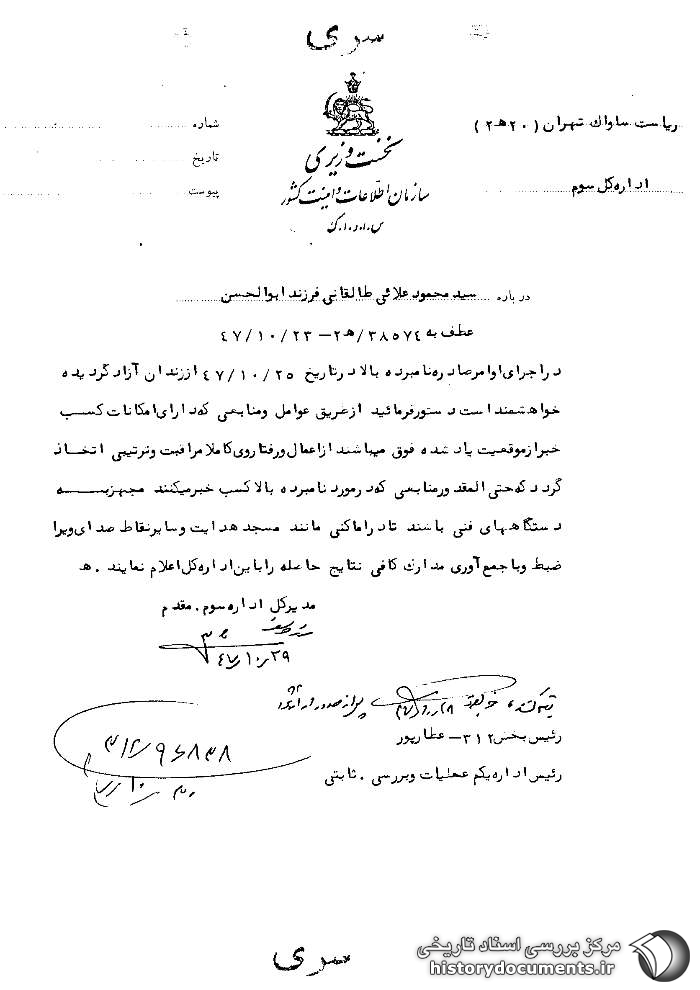 سری
ریاست ساواک تهران ( ۲۰ هـ ۲ )
اداره کل سوم
نخست وزیری
سازمان اطلاعات و امنیت کشور
س.ا.و.ا.ک
شماره
تاریخ
پیوست
درباره سید محمود علائی طالقانی فرزند ابوالحسن
عطف به ۳۸۵۷۴/هـ۲ – ۴۷/۱۰/۲۳
در اجرای اوامر صادره نامبرده بالا در تاریخ ۴۷/۱۰/۲۵ از زندان آزاد گردیده
خواهشمند است دستور فرمائید از طریق عوامل و منابعی که دارای امکانات کسب
خبر از موقعیت یاد شده فوق میباشند از اعمال و رفتار وی کاملا مراقبت و ترتیبی اتخاذ
گردد که حتی المقدور منابعی که در مورد نامبرده بالا کسب خبر میکنند مجهز به
دستگاههای فنی باشند تا در اماکنی مانند مسجد هدایت و سایر نقاط صدای ویرا
ضبط و با جمع آوری مدارک کافی نتایج حاصله را باین اداره کل اعلام نمایند . هـ
مدیر کل اداره سوم . مقدم
۴۷/۱۰/۲۹
پس از صدور
رئیس بخش ۳۱۲ – عطارپور
رئیس اداره یکم عملیات و بررسی . ثابتی
سری
مرکز بررسی اسناد تاریخی
historydocuments.ir